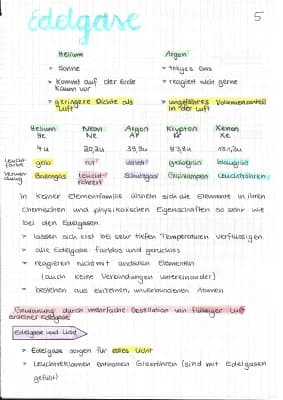 Edelgase
5
Helium Argon
> Sonne > träges Gas
> Kommt auf der Erde kaum vor > reagiert nicht gerne
> geringere Dichte als Luft > ungefähres Volumenanteil in der Luft
Helium Neon Argon Krypton Xenon
He Ne Ar Kr Xe
4u 20,2u 39,9u 83,8u 131,3u
Leuchtfarbe gelb rot violett gelbgrün blaugrün
Verwendung Ballongas Leuchtröhren Schutzgas Glühlampen Leuchtröhren
In keiner Elementfamilie ähneln sich die Elemente in ihren
chemischen und physikalischen Eigenschaften so sehr wie
bei den Edelgasen.
> lassen sich erst bei sehr tiefen Temperaturen verflüssigen.
> alle Edelgase farblos und geruchlos
> reagieren nicht mit anderen Elementen
(auch keine Verbindungen untereinander)
> bestehen aus einzelnen, unverbundenen Atomen
Gewinnung durch mehrfache Destillation von flüssiger Luft
Edelgase und Licht
> Edelgase sorgen für edles Licht
> Leuchtreklamen enthalten Glasröhren (sind mit Edelgasen
gefüllt)